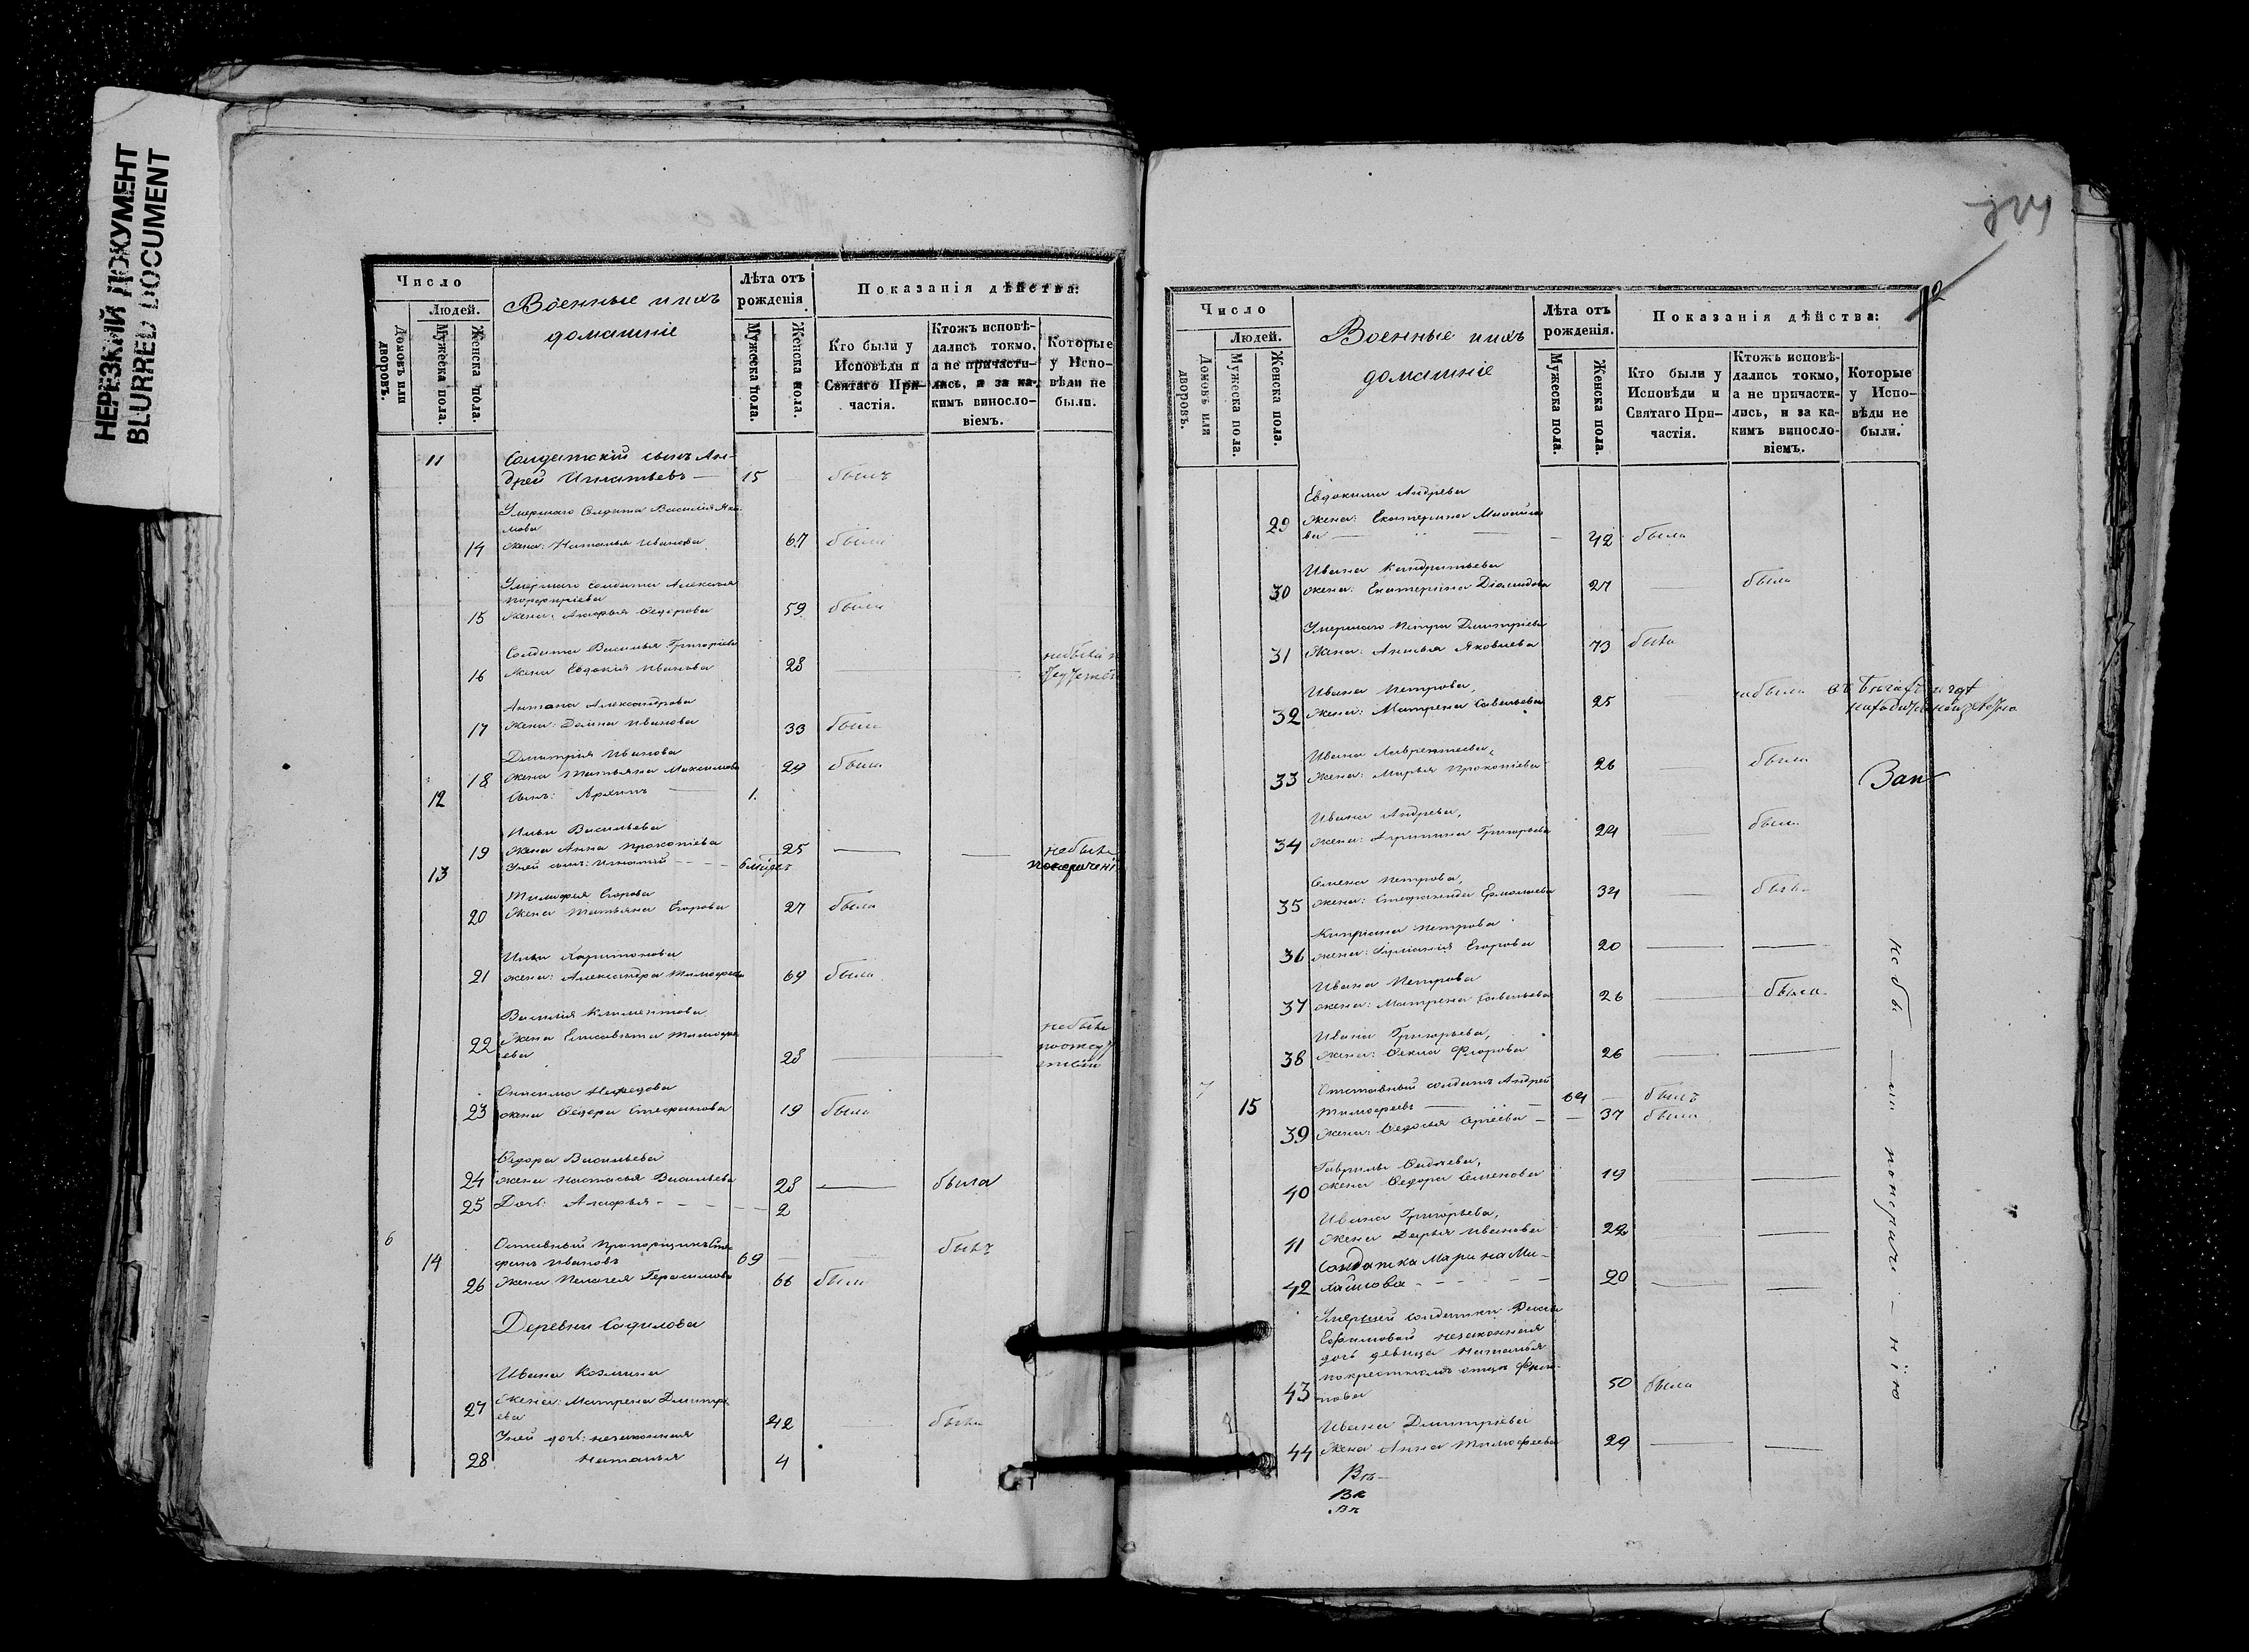 НЕРЕЗКИЙ ДОКУМЕНТ
BLURRED DOCUMENT
Число
Людей.
Домовъ или дворовъ.
Мужеска пола.
Женска пола.
Военные и ихъ
домашніе
Лѣта отъ
рожденія
Мужеска пола.
Женска пола.
Показанія дѣйства:
Кто были у
Исповѣди и
Святаго При-
частія.
Ктожъ исповѣ-
дались токмо,
а не причасти-
лись, и за ка-
кимъ винosло-
віемъ.
Которые
у Испо-
вѣди не
были.
11 Солдатскій сынъ Ан-
дрей Игнатьевъ — 15 былъ
Умершаго Солдата Василія Яко-
лова
14 Жена: Наталья Иванова 67 была
Умершаго Солдата Алексѣя
Порфиріева
15 Жена: Агафья Ѳедорова 59 была
Солдата Василья Григоріева
16 Жена Евдокія Иванова 28
Антона Александрова
17 Жена: Домна Иванова 33 была
Дмитрія Иванова
18 Жена Татьяна Максимова 29 была
12 Сынъ: Архипъ — 1.
Ильи Васильева
19 Жена Анна Прокопіева 25 — — небыла
13 У ней сынъ: Игнатій
Тимофея Егорова
20 Жена Татьяна Егорова 27 была
Ильи Харитонова
21 Жена: Александра Тимофеева 69 была
Василія Климентова
22 Жена Елисавета Тимофе-
ева 28 — — небыла
Онисима Нефедова
23 Жена Ѳедора Стефанова 19 была
Ѳедора Васильева
24 Жена Настасья Васильева 28 — была
25 Дочь: Агафья - - - 2
6 14 Отставный прапорщикъ Сте-
фанъ Ивановъ 69 — — былъ
26 Жена Пелагея Герасимова 66 была
Деревни Садилова
Ивана Козмина
27 Жена: Матрена Дмитрі-
ева 42 — была
У ней дочь: незаконная
28 Наталья 4
2
Число
Людей.
Домовъ или дворовъ.
Мужеска пола.
Женска пола.
Военные и ихъ
домашніе
Лѣта отъ
рожденія.
Мужеска пола
Женска пола.
Показанія дѣйства:
Кто были у
Исповѣди и
Святаго При-
частія.
Ктожъ исповѣ-
дались токмо,
а не причасти-
лись, и за ка-
кимъ винosло-
віемъ.
Которые
у Испо-
вѣди не
были.
Евдокима Андрева
29 Жена: Екатерина Михайло-
ва — — — 42 была
Ивана Кандратьева
30 Жена: Екатерина Діомидова 27 — была
Умершаго Петра Дмитріева
31 Жена: Анисья Яковлева 73 была
Ивана Петрова,
32 Жена: Матрена Савельева 25 — небыла
Ивана Лаврентьева,
33 Жена: Марья Прокопіева 26 — была
Зап
Ивана Андрева,
34 Жена: Агрипина Григорьева 24 — была
Семена Петрова,
35 Жена: Стефанида Ермолаева 34 — была
Кипріана Петрова
36 Жена: Егорова 20 — —
Ивана Петрова
37 Жена: Матрена Савельева 26 — была
Ивана Григорьева,
38 Жена: Ѳекла Фролова 26 — —
7 15 Отставный солдатъ Андрей
Тимофеевъ — 64 — былъ
39 Жена: Ѳедосья Сргеева — — 37 была
Гаврилы
40 Жена Ѳедора Семенова 19 —
Ивана Григорьева,
41 Жена Дарья Иванова 22 —
Солдатка Марина Ми-
42 хайлова - - - 20 — —
Умершей Солдатки
Ефимовой незаконная
дочь девица Наталья
по крестномъ отцѣ Фили-
43 пова 50 была
Ивана Дмитріева
44 Жена Анна Тимофеева 29 — —